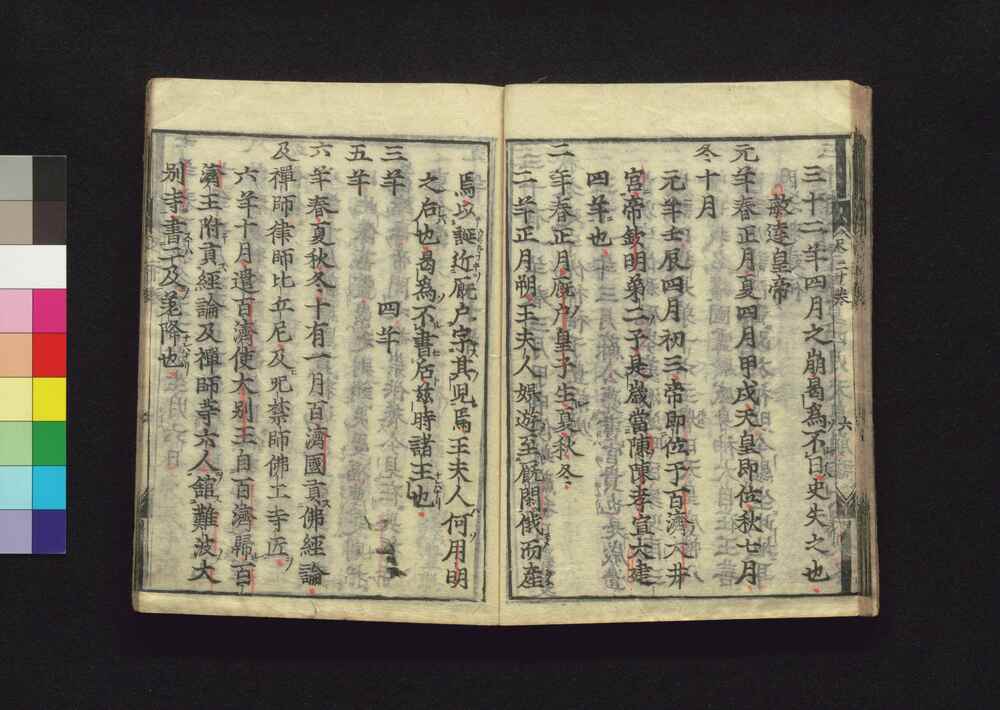 三十二年四月之崩曷為不日史失之也
敏達皇帝
元年春正月夏四月甲戌天皇即位秋七月
冬十月
元年壬辰四月初三帝即位于百濟大井
宮帝欽明第二子是歳當陳陳孝宣大建
四年也
二年春正月厩戸皇子生夏秋冬
二年正月朔王夫人嬪遊至厩閑俄而産
焉以誕近厩戸字其児焉王夫人何用明
之后也曷為不書后玆時諸王也
三年 四年
五年
六年春夏秋冬十有一月百濟國貢佛經論
及禪師律師比丘尼及咒禁師佛工寺匠
六年十月遣百濟使大別王自百濟歸百
濟王附貢經論及禪師等六人舘難波大
別寺書于及差降也